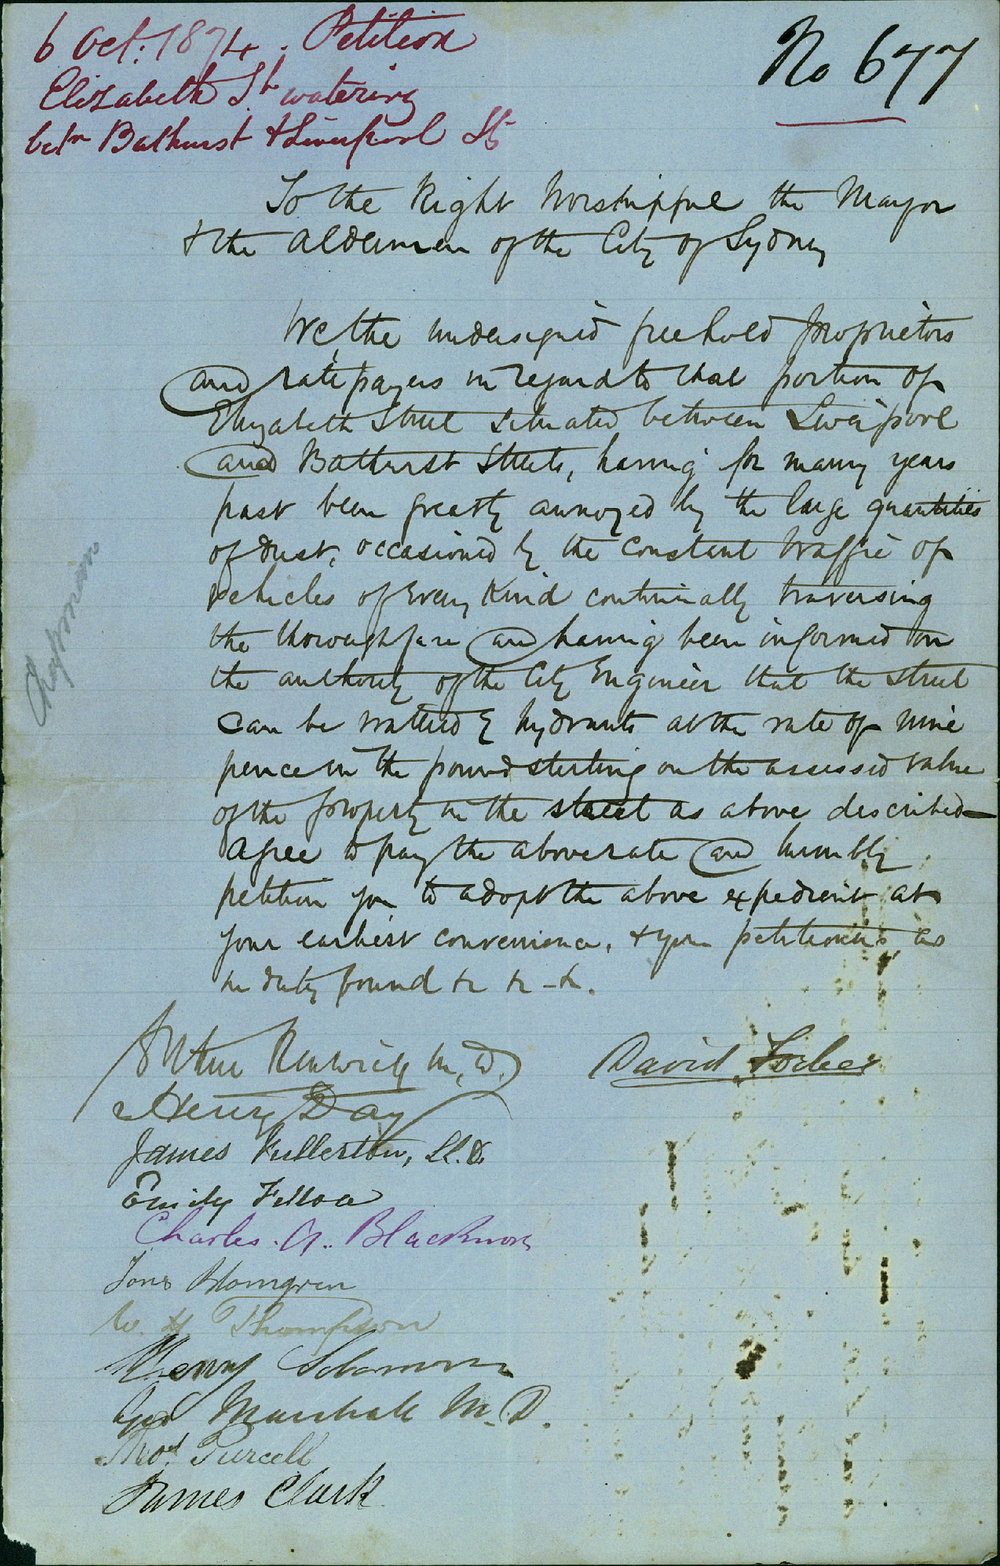 6 Oct. 1874. Petition
Elizabeth St watering
betn Bathurst & Liverpool Sts
No 677
To the Right Worshipful the Mayor
& the Aldermen of the City of Sydney
We, the undersigned freehold proprietors
and ratepayers in regard to that portion of
Elizabeth Street situated between Liverpool
and Bathurst Streets, having for many years
past been greatly annoyed by the large quantities
of dust, occasioned by the constant traffic of
vehicles of every kind continually traversing
the thoroughfare and having been informed on
the authority of the City Engineer that the street
can be watered by hydrants at the rate of nine
pence in the pound sterling on the assessed value
of the property in the street as above described
agree to pay the above rate and humbly
petition you to adopt the above expedient at
your earliest convenience, & your petitioners as
in duty bound &c &c &c.
Chapman
Arthur Renwick M.D.
David Forbes
Henry Day
James Fullerton, LL.D.
Emily
Charles. A. Blackmore
Jons Holmgren
W. H Thompson
Henry Solomon
Marshall M.D.
Thos Purcell
James Clark